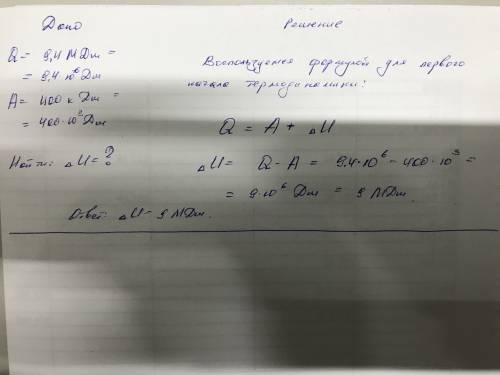 Дано
Решение
Q = 9,4 МДж =
= 9,4·10⁶ Дж
A = 400 к Дж =
= 400·10³ Дж
Найти: ΔU = ?
Воспользуемся формулой для первого
начала термодинамики:
Q = A + ΔU
ΔU = Q - A = 9.4·10⁶ - 400·10³ =
= 9·10⁶ Дж = 9 МДж.
Ответ: ΔU - 9 МДж.